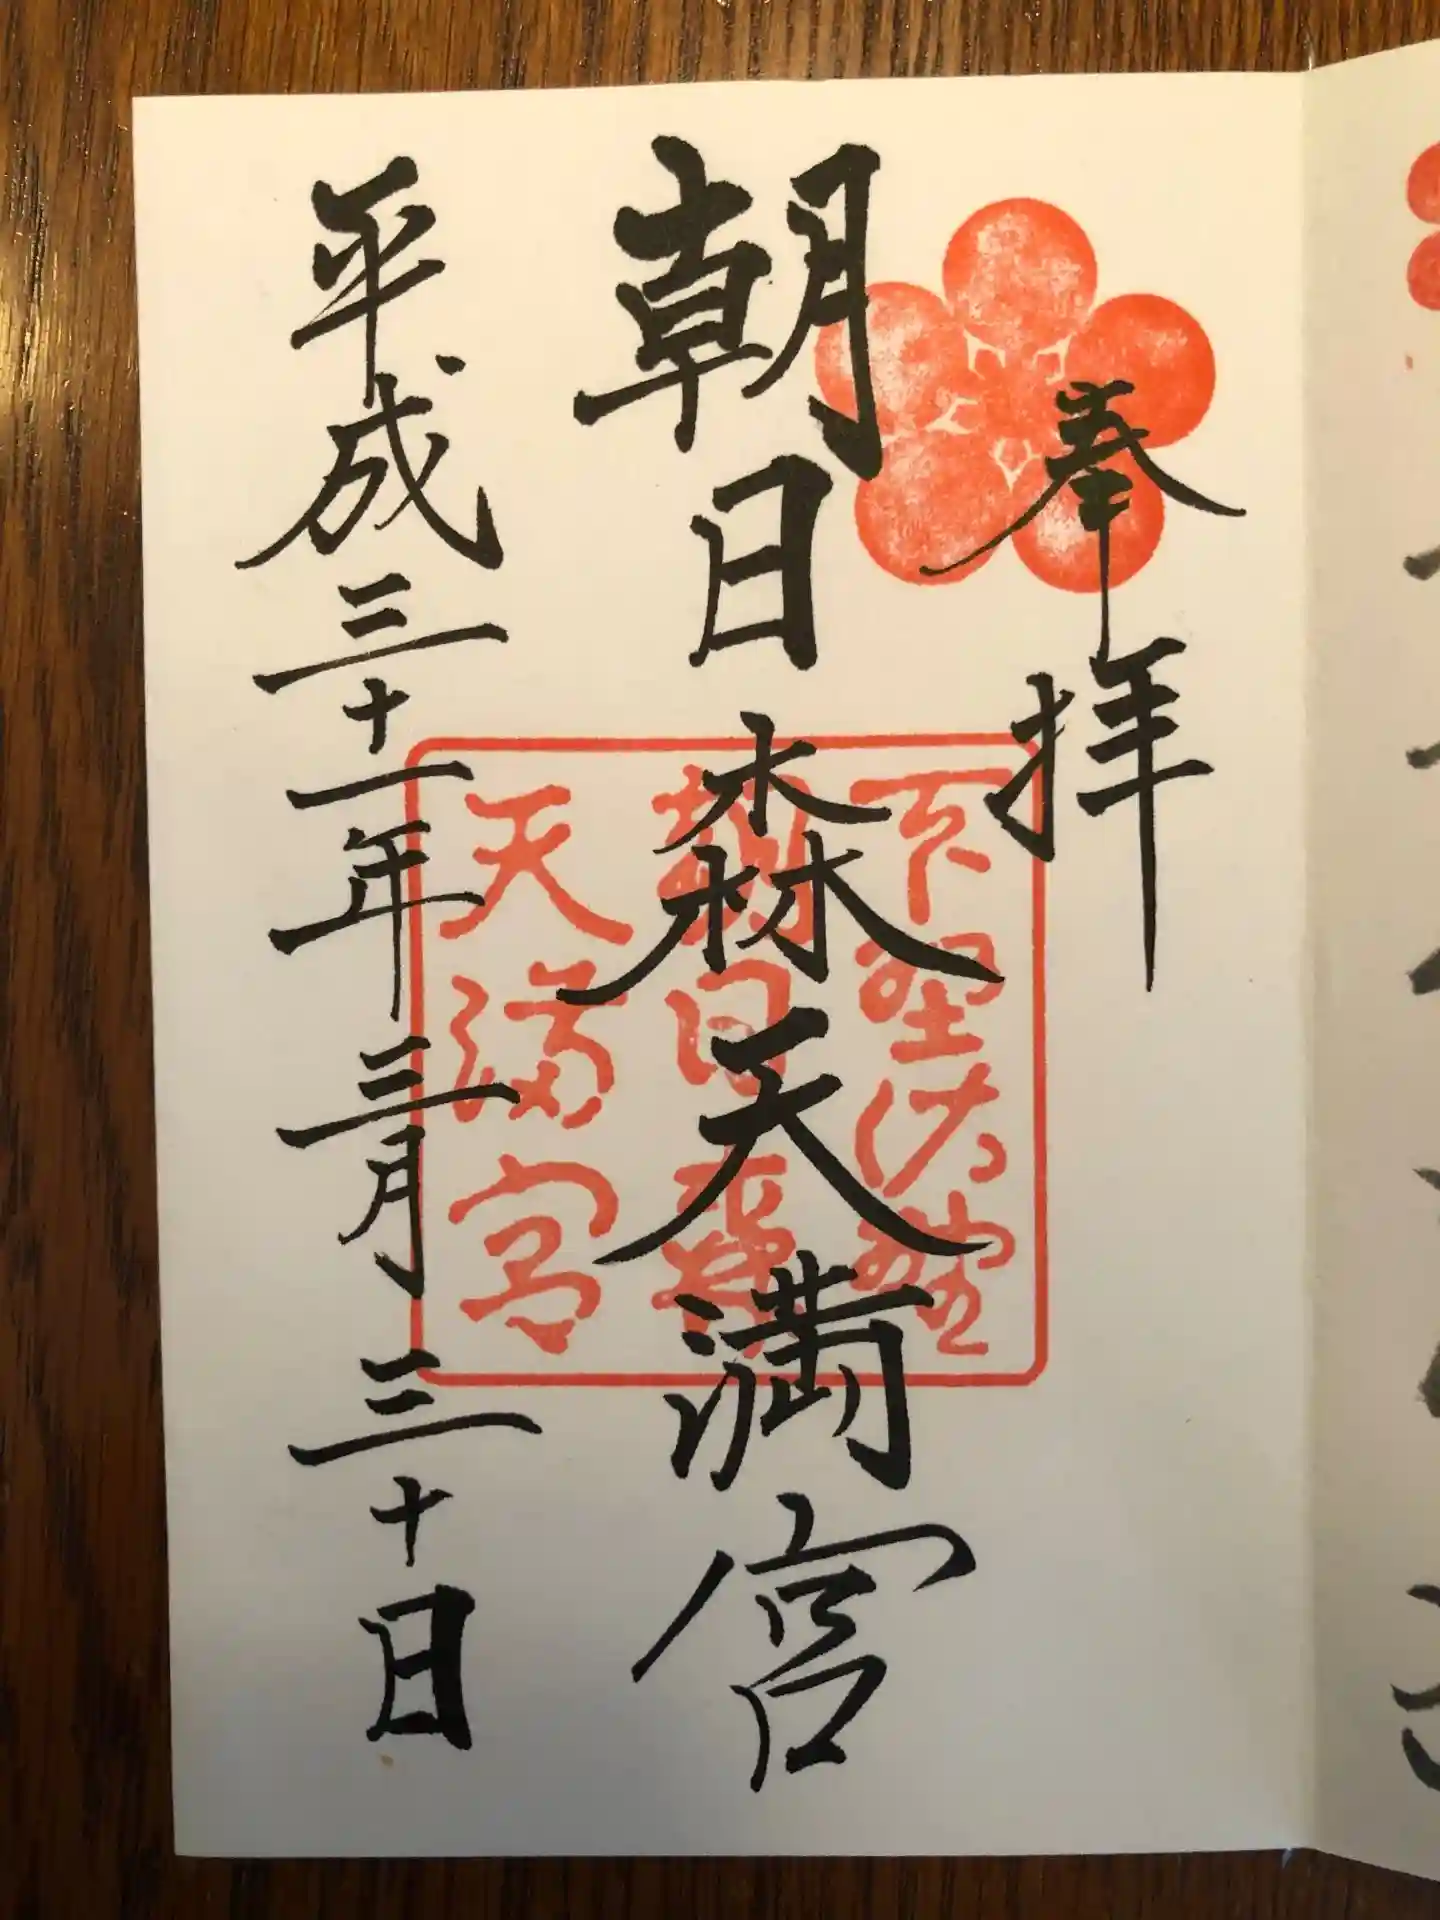 奉拝
朝日森天満宮
平成三十一年三月三十日
下野佐野
朝日森
天満宮